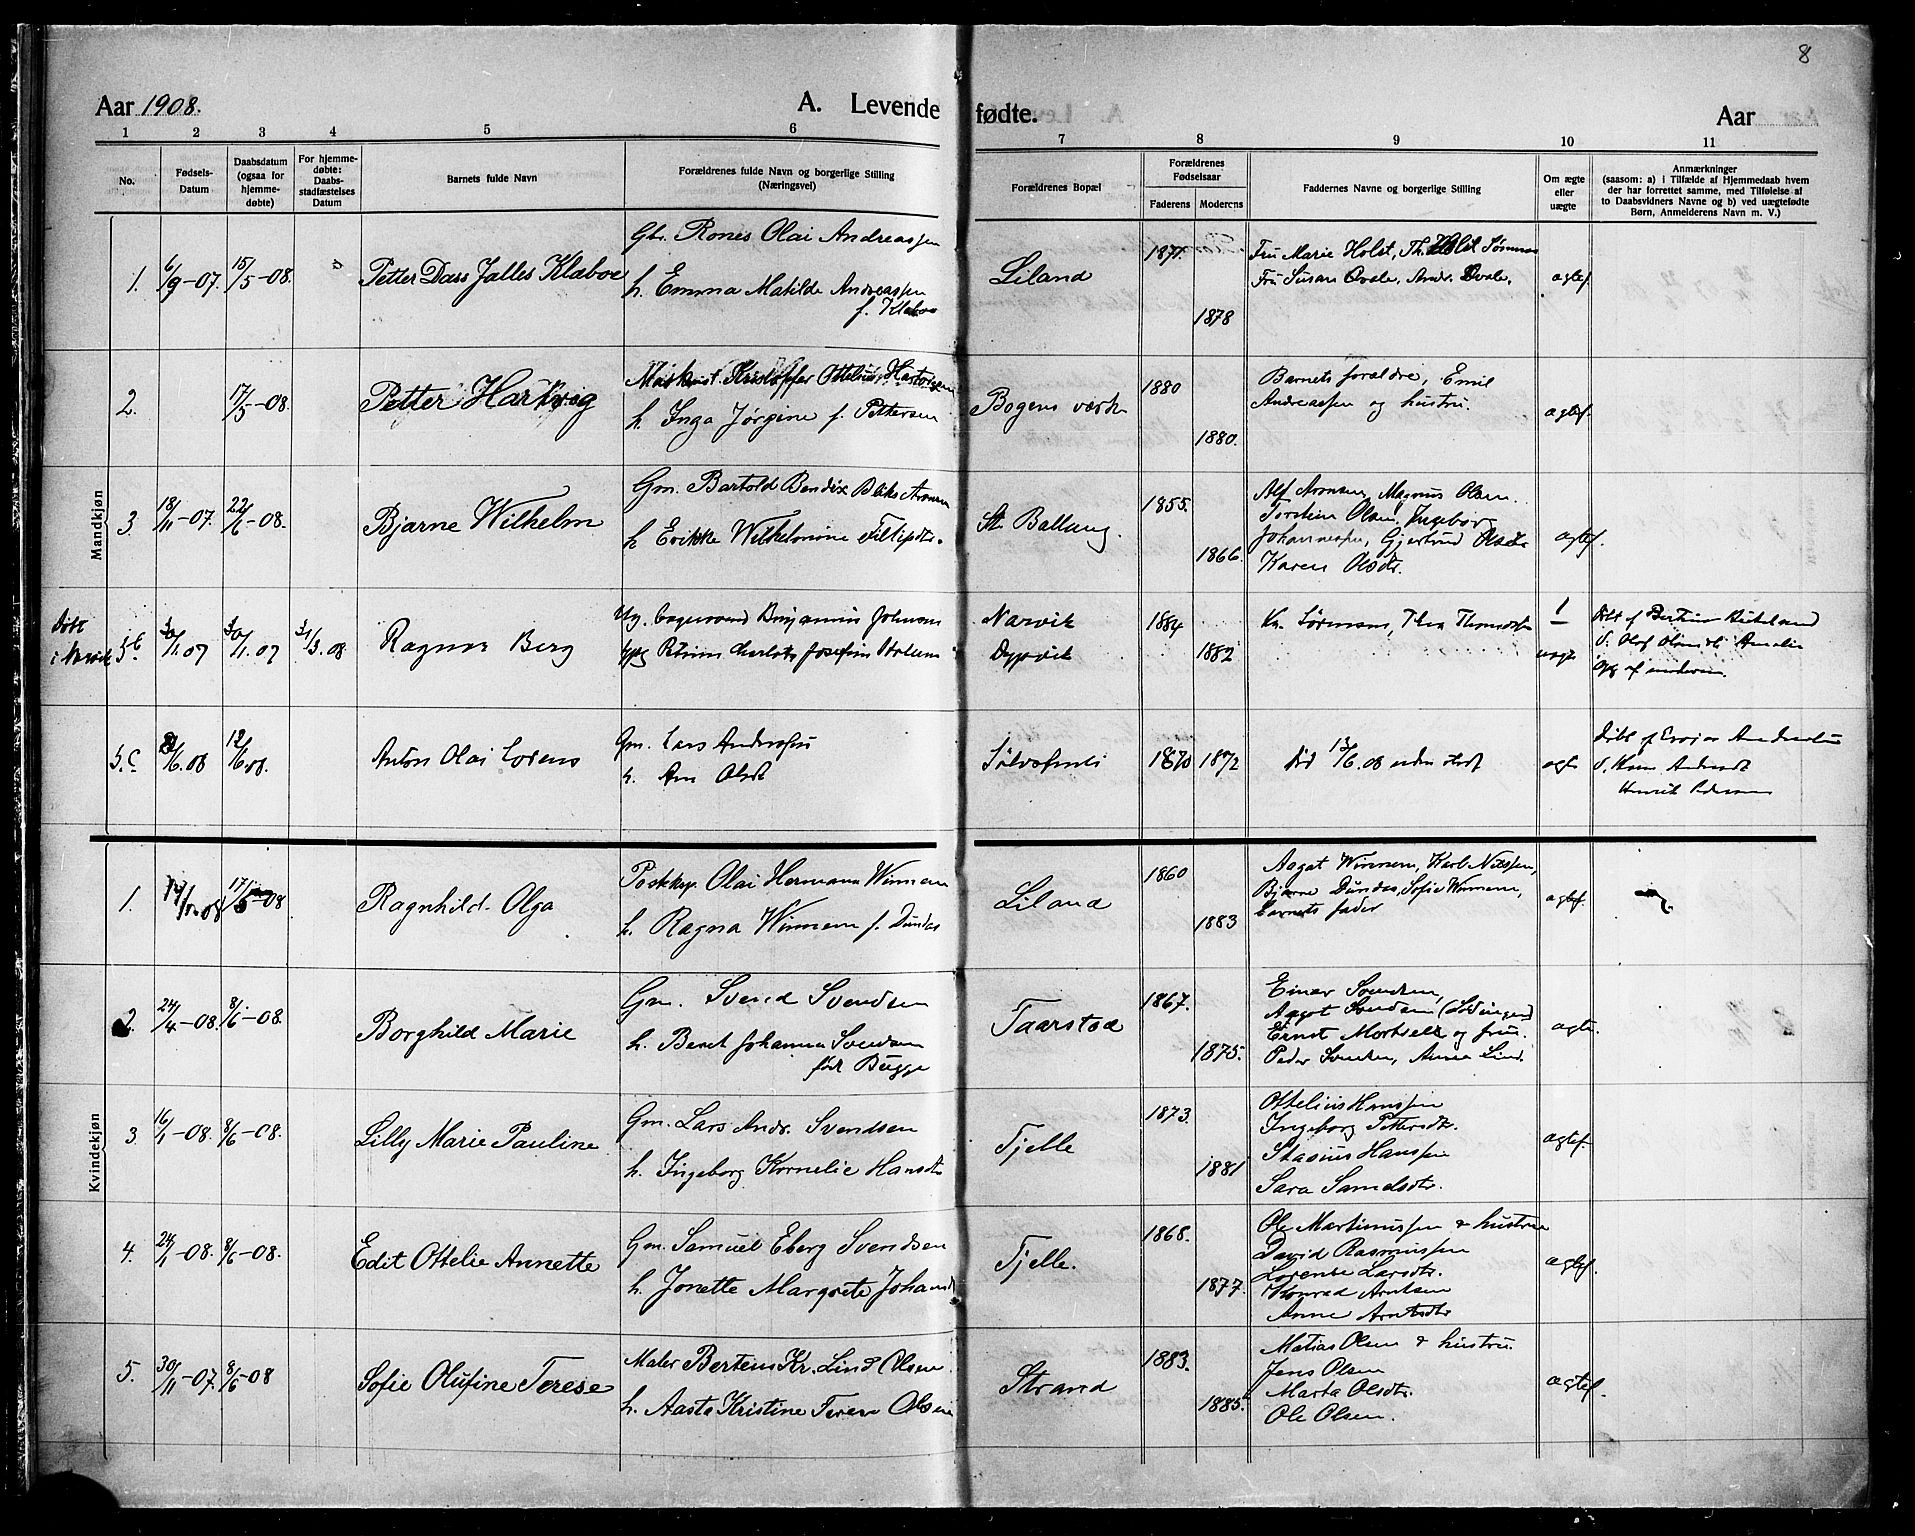 8
Aar 1908. A. Levende fødte. Aar
1 2 3 4 5 6 7 8 9 10 11
No.
Fødsels-
Datum
Daabsdatum
(ogsaa for
hjemme-
døbte)
For hjemme-
døbte:
Daabs-
stadfæstelses
Datum
Barnets fulde Navn
Forældrenes fulde Navn og borgerlige Stilling
(Næringsvei)
Forældrenes Bopæl
Forældrenes
Fødselsaar
Faderens Moderens
Faddernes Navne og borgerlige Stilling
Om ægte
eller
uægte
Anmærkninger
(saasom: a) i Tilfælde af Hjemmedaab hvem
der har forrettet samme, med Tilføielse af
to Daabsvidners Navne og b) ved uægtefødte
Børn, Anmelderens Navn m. V.)
Mandkjøn
1. 6/9-07. 15/5-08. Petter Dass Jalles Klaboe
Gbr. Rones Olai Andreassen
h. Emma Matilde Andreassen
f. Klaboe
Liland
1871.
1878
Fru Marie Holst, Th. Holst
Fru Susan Qvale, Andr. Qvale,
ægtef.
2. 17/5-08. Petter Hartvig
Kristoffer Ottelius Hartvigsen
h. Inga Jørgine f. Pettersen
Bogens værk
1880
1880.
Barnets forældre, Emil
Andreassen og hustru.
ægtef.
3 18/11-07. 22/1-08. Bjarne Wilhelm
Gm. Bartold Bendix Bliks Aronsen
h Erikke Wilhelmine Filipdtr.
St. Ballang.
1855.
1866.
Alf Aronsen, Magnus Olsen.
Torstein Olsen, Ingeborg
Johannessen, Gjertrud Olsdtr
Karen Olsdtr.
ægtef.
Døbt
i Narvik
30/1.07 30/1.07 31/3.08 Ragna Berg
Ug. Benjamin Johnsen
Narvik
Dypvik
1884
1882
1
uægte
5.c 12/6.08. Anton Olai Lorens
Gm. Lars Anderssen
h. Ane Olsdt
1870 1872
Død 13/6.08 uden
ægte
Henrik Pedersen
Kvindekjøn
1. 17/5-08 Ragnhild Olga
Postexp. Olai Hermann Winnem
h. Ragna Winnem f. Dundas
Liland
1860
1883
Aagot Winnem, Karl Nilssen,
Bjarne Dundas, Sofie Winnem,
barnets fader
ægtef.
2. 24/4-08. 8/6-08. Borghild Marie
Gm. Svend Svendsen
h. Beret Johanna Svendsen
født Bugge
Taarstad
1867.
1875.
Einar Svendsen,
Aagot Svendsen (Lødingen)
Ernst Mortsell og fru.
Peder Svendsen, Anna Lind.
ægte.
3. 16/1-08. 8/6-08. Lilly Marie Pauline
Gm. Lars Andr. Svendsen
h. Ingeborg Kornelie Hansdtr
Tjelle
1873.
1881
Ottelius Hanssen
Ingeborg Pettersdtr.
Stasius Hanssen
Sara Samelsdtr.
ægtef.
4. 24/1-08. 8/6-08. Edit Ottelie Annette
Gm. Samuel Eberg Svendsen
h. Jonette Margrete Johansd
Tjelle.
1868.
1877.
Ole Martinussen & hustru
David Rasmussen
Lorense Larsdtr.
Konrad Arntsen
Anne Arntsdtr
ægtef.
5. 30/11-07. 8/6-08 Sofie Olufine Terese
Maler Bertens Kr. Lind Olsen
h. Aasta Kristine Terese Olsen
Strand
1883.
1885.
Matias Olsen & hustru.
Jens Olsen
Marta Olsdtr.
Ole Olsen.
ægtef.